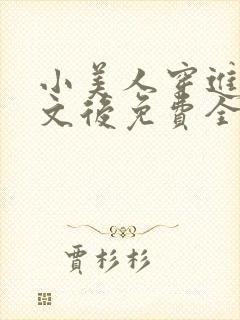 小美人穿進
文後免費全
賈杉杉